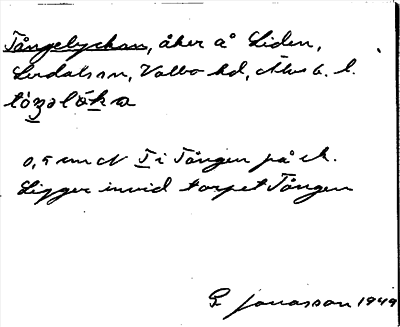 Tångelyckan, åker å Liden,
Lerdalssn, Valbo hd, Älvsb. l.
0,5 cm N T i Tången på ek.
Ligger invid torpet Tången
G Jonasson 1949